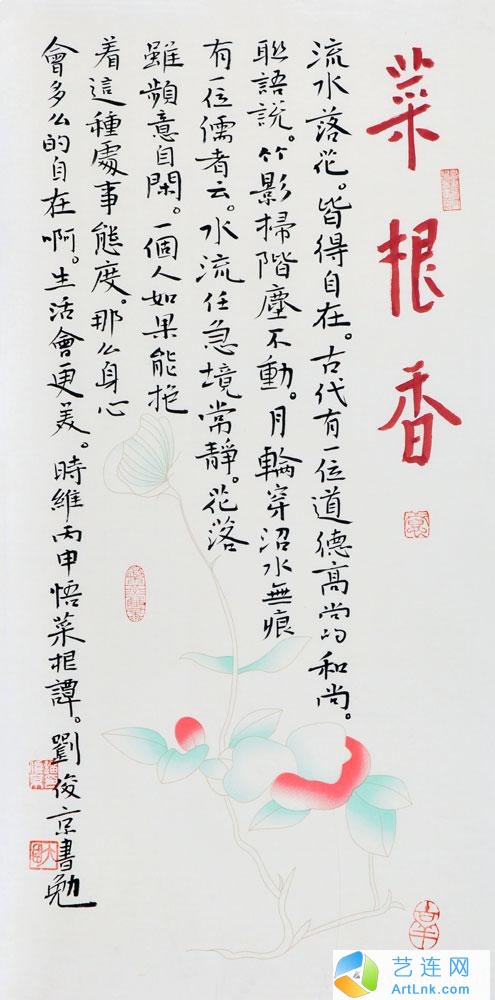 菜根香
流水落花。皆得自在。古代有一位道德高尚的和尚。
聯語説。竹影掃階塵不動。月輪穿沼水無痕
有一位儒者云。水流任急境常靜。花落
雖頻意自閑。一個人如果能抱
着這種處事態度。那么身心
會多么的自在啊。生活會更美。時維丙申悟菜根譚。劉俊京書勉
艺连网
ArtLnk.com